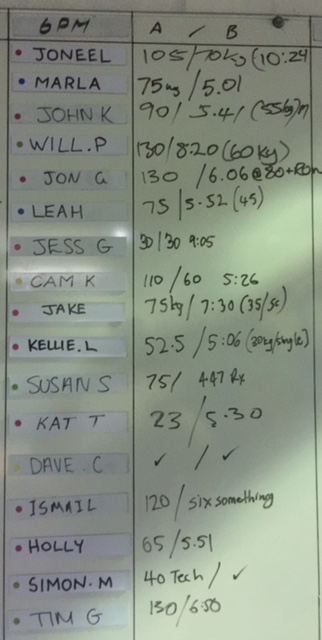 6PM A / B
JONEEL 105/70kg (10:24
MARLA 75kg /5.01
JOHN K 90/ 5.41 (55kg)
WILL.P 130/8.20 (60kg)
JON G 130 /6.06@80+
LEAH 75 /5.52 (45)
JESS G 30/30 9:05
CAM K 110 /60 5:26
JAKE 75kg / 7:30 (35/
KELLIE.L 52.5 /5:06 (30kg/single)
SUSAN S 75/ 447 Rx
KAT T 23 /5.30
DAVE.C ✓ / ✓
ISMAIL 120 / six something
HOLLY 65/5.51
SIMON.M 40 Tech/ ✓
TIM G 130/6:50